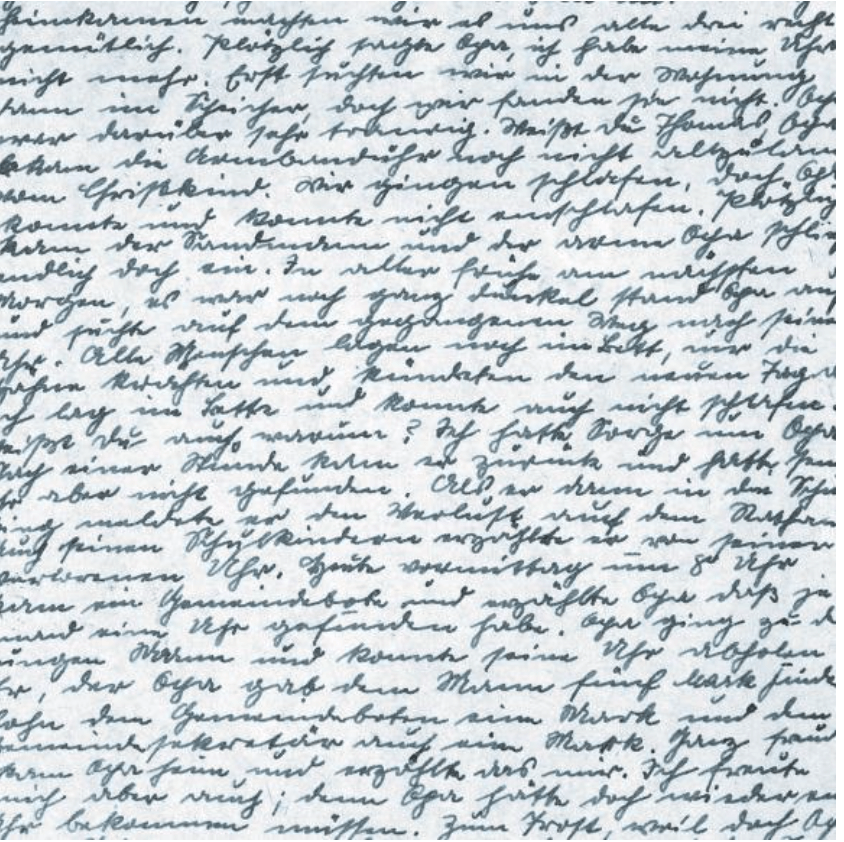 heimkamen machten wir es uns alle drei recht
gemütlich. Plötzlich sagte Opa, ich habe meine Uhr
nicht mehr. Erst suchten wir in der Wohnung
dann im Speicher, doch wir fanden sie nicht. Opa
war darüber sehr traurig. Weißt du Thomas, Opa
bekam die Armbanduhr noch nicht allzulan
vom Christkind. Wir gingen schlafen, doch Opa
konnte und konnte nicht einschlafen. Plötzlich
kam der Sandmann und der arme Opa schlief
endlich doch ein. In aller frühe am nächsten
Morgen, es war noch ganz dunkel stand Opa auf
und suchte auf dem gegangenen Weg nach seine
Uhr. Alle Menschen lagen noch im Bett, nur die
Hähne krähten und kündeten den neuen Tag
ich lag im Bette und konnte auch nicht schlafen.
weißt du auch warum? Ich hatte Sorge um Opa
Nach einer Stunde kam er zurück und hatte
aber nicht gefunden. Als er dann in die Schu
ging meldete er den Verlust auf dem Rathau
Auch seinen Schulkindern erzählte er von seiner
verlorenen Uhr. Heute vormittag um 8 Uhr
kam ein Gemeindebote und erzählte Opa daß je
mand eine Uhr gefunden habe. Opa ging zu de
jungen Mann und konnte seine Uhr abholen
der Opa gab dem Mann fünf Mark Finde
lohn dem Gemeindeboten eine Mark und dem
Gemeindesekretär auch eine Mark. Ganz freud
kam Opa heim und erzählte das mir. Ich freute
mich aber auch; denn Opa hätte doch wieder ein
Uhr bekommen müssen. Zum Trost, weil doch Op